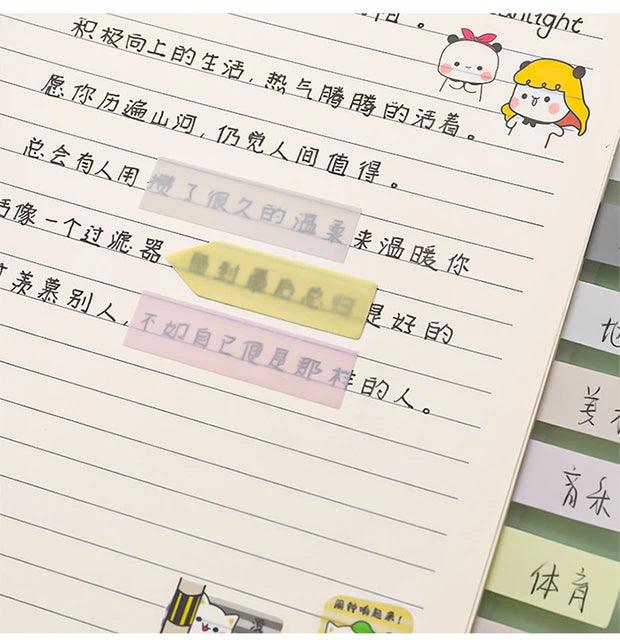 积极向上的生活，热气腾腾的活着。
愿你历遍山河，仍觉人间值得。
总会有人用攒了很久的温柔来温暖你
像一个过滤器 留到最后总归是好的
羡慕别人，不如自己便是那样的人。
音乐
体育
闹钟响起来！